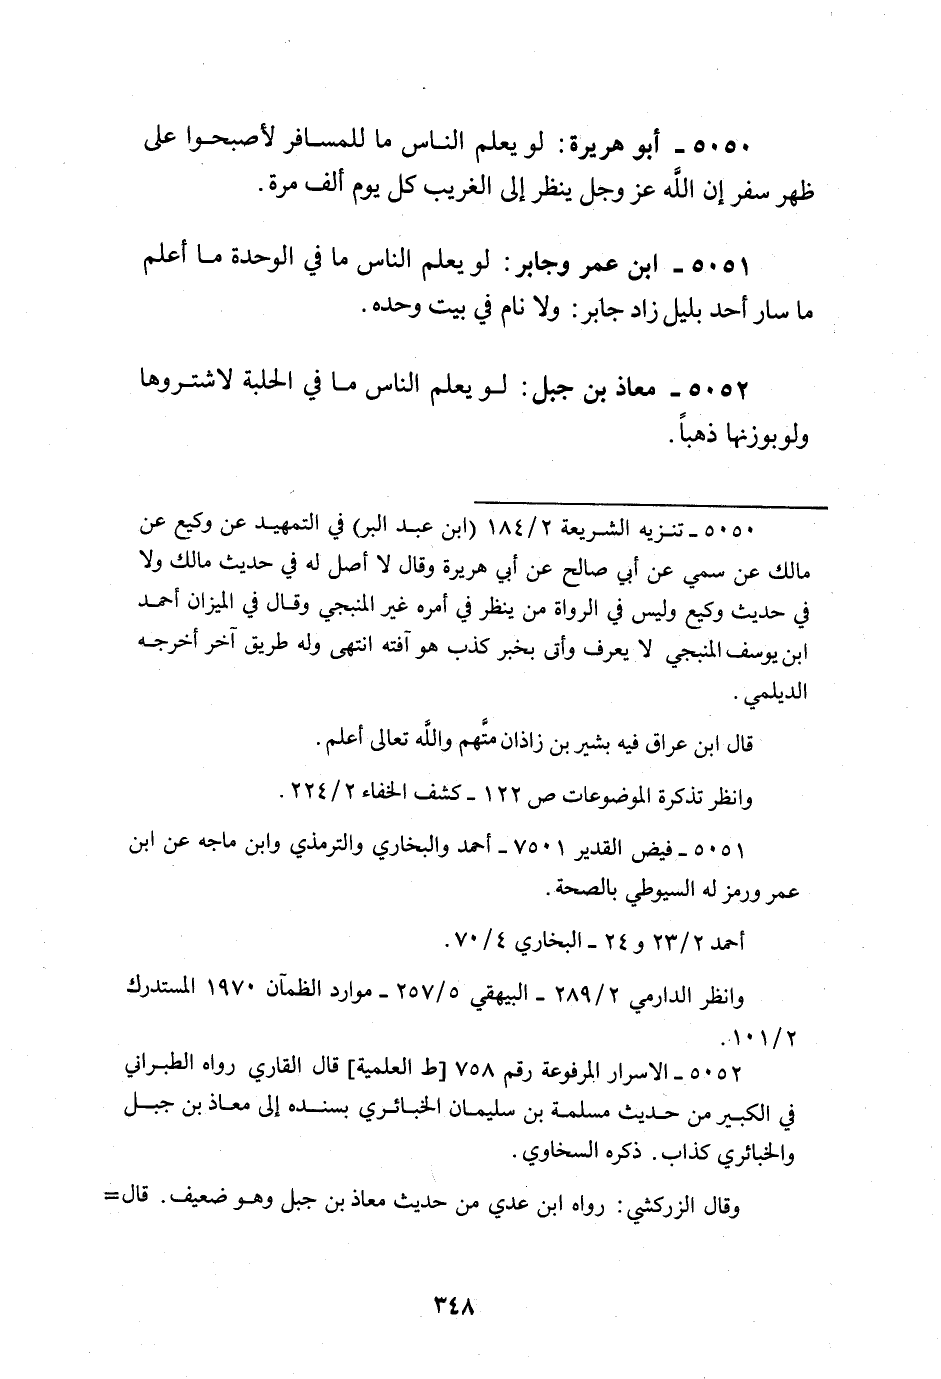 ٥٠٥٠ ـ أبو هريرة: لو يعلم الناس ما للمسافر لأصبحوا على
ظهر سفر إن اللَّه عز وجل ينظر إلى الغريب كل يوم ألف مرة.
٥٠٥١ ـ ابن عمر وجابر: لو يعلم الناس ما في الوحدة ما أعلم
ما سار أحد بليل زاد جابر: ولا نام في بيت وحده.
٥٠٥٢ ـ معاذ بن جبل: لو يعلم الناس ما في الحلبة لاشتروها
ولو بوزنها ذهباً.
٥٠٥٠ ـ تنزيه الشريعة ١٨٤/٢ (ابن عبد البر) في التمهيد عن وكيع عن
مالك عن سمي عن أبي صالح عن أبي هريرة وقال لا أصل له في حديث مالك ولا
في حديث وكيع وليس في الرواة من ينظر في أمره غير المنبجي وقال في الميزان أحمد
ابن يوسف المنبجي لا يعرف وأتى بخبر كذب هو آفته انتهى وله طريق آخر أخرجه
الديلمي.
قال ابن عراق فيه بشير بن زاذان متَّهم واللَّه تعالى أعلم.
وانظر تذكرة الموضوعات ص ١٢٢ ـ كشف الخفاء ٢٢٤/٢.
٥٠٥١ ـ فيض القدير ٧٥٠١ ـ أحمد والبخاري والترمذي وابن ماجه عن ابن
عمر ورمز له السيوطي بالصحة.
أحمد ٢٣/٢ و ٢٤ ـ البخاري ٧٠/٤.
وانظر الدارمي ٢٨٩/٢ ـ البيهقي ٢٥٧/٥ ـ موارد الظمآن ١٩٧٠ المستدرك
١٠١/٢.
٥٠٥٢ ـ الاسرار المرفوعة رقم ٧٥٨ [ط العلمية] قال القاري رواه الطبراني
في الكبير من حديث مسلمة بن سليمان الخبائري بسنده إلى معاذ بن جبل
والخبائري كذاب. ذكره السخاوي.
وقال الزركشي: رواه ابن عدي من حديث معاذ بن جبل وهو ضعيف. قال=
٣٤٨